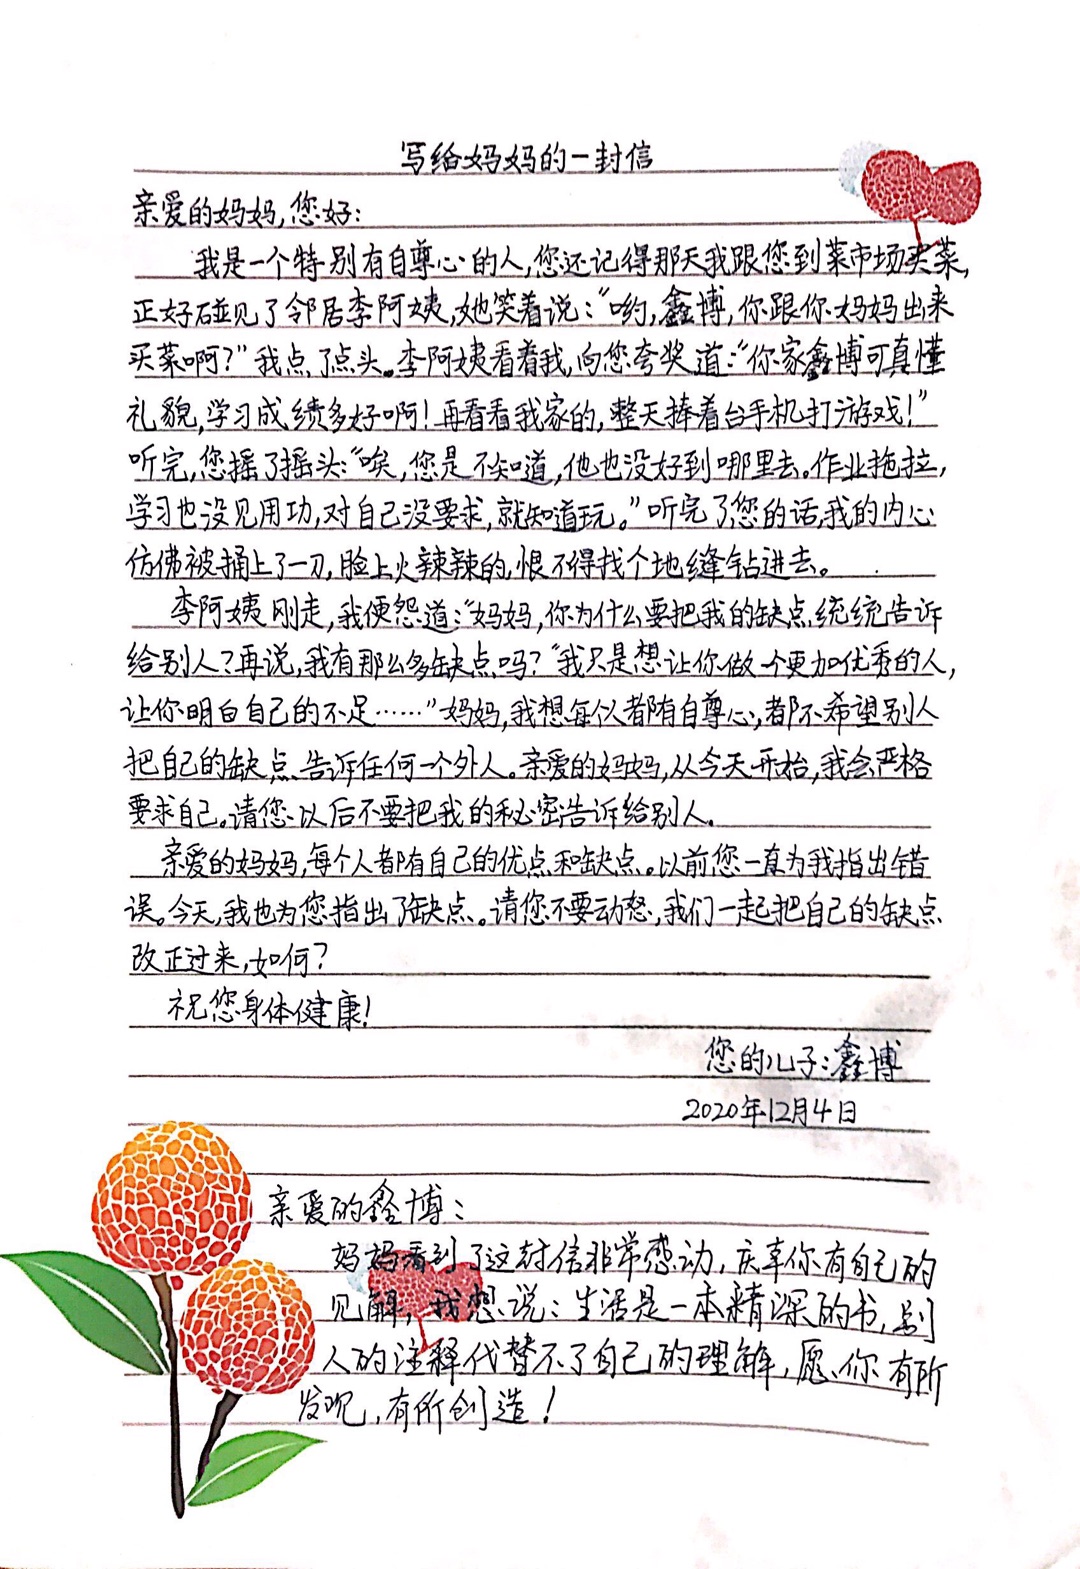 写给妈妈的一封信
亲爱的妈妈,您好:
我是一个特别有自尊心的人,您还记得那天我跟您到菜市场买菜,
正好碰见了邻居李阿姨,她笑着说:“哟,鑫博,你跟你妈妈出来
买菜啊?”我点了点头。李阿姨看着我,向您夸奖道:“你家鑫博可真懂
礼貌,学习成绩多好啊!再看看我家的,整天捧着台手机打游戏!”
听完,您摇了摇头:“唉,您是不知道,他也没好到哪里去。作业拖拉,
学习也没见用功,对自己没要求,就知道玩。”听完了您的话,我的内心
仿佛被捅上了一刀,脸上火辣辣的,恨不得找个地缝钻进去。
李阿姨刚走,我便怨道:“妈妈,你为什么要把我的缺点统统告诉
给别人?再说,我有那么多缺点吗?“我只是想让你做一个更加优秀的人,
让你明白自己的不足……”妈妈,我想每个人都有自尊心,都不希望别人
把自己的缺点告诉任何一个外人。亲爱的妈妈,从今天开始,我会严格
要求自己。请您以后不要把我的秘密告诉给别人.
亲爱的妈妈,每个人都有自己的优点和缺点。以前您一直为我指出错
误。今天,我也为您指出了缺点。请您不要动怒,我们一起把自己的缺点
改正过来,如何?
祝您身体健康!
您的儿子:鑫博
2020年12月4日
亲爱的鑫博:
妈妈看到了这封信非常感动,庆幸你有自己的
见解,我想说:生活是一本精深的书,别
人的注释代替不了自己的理解,愿你有所
发现,有所创造!